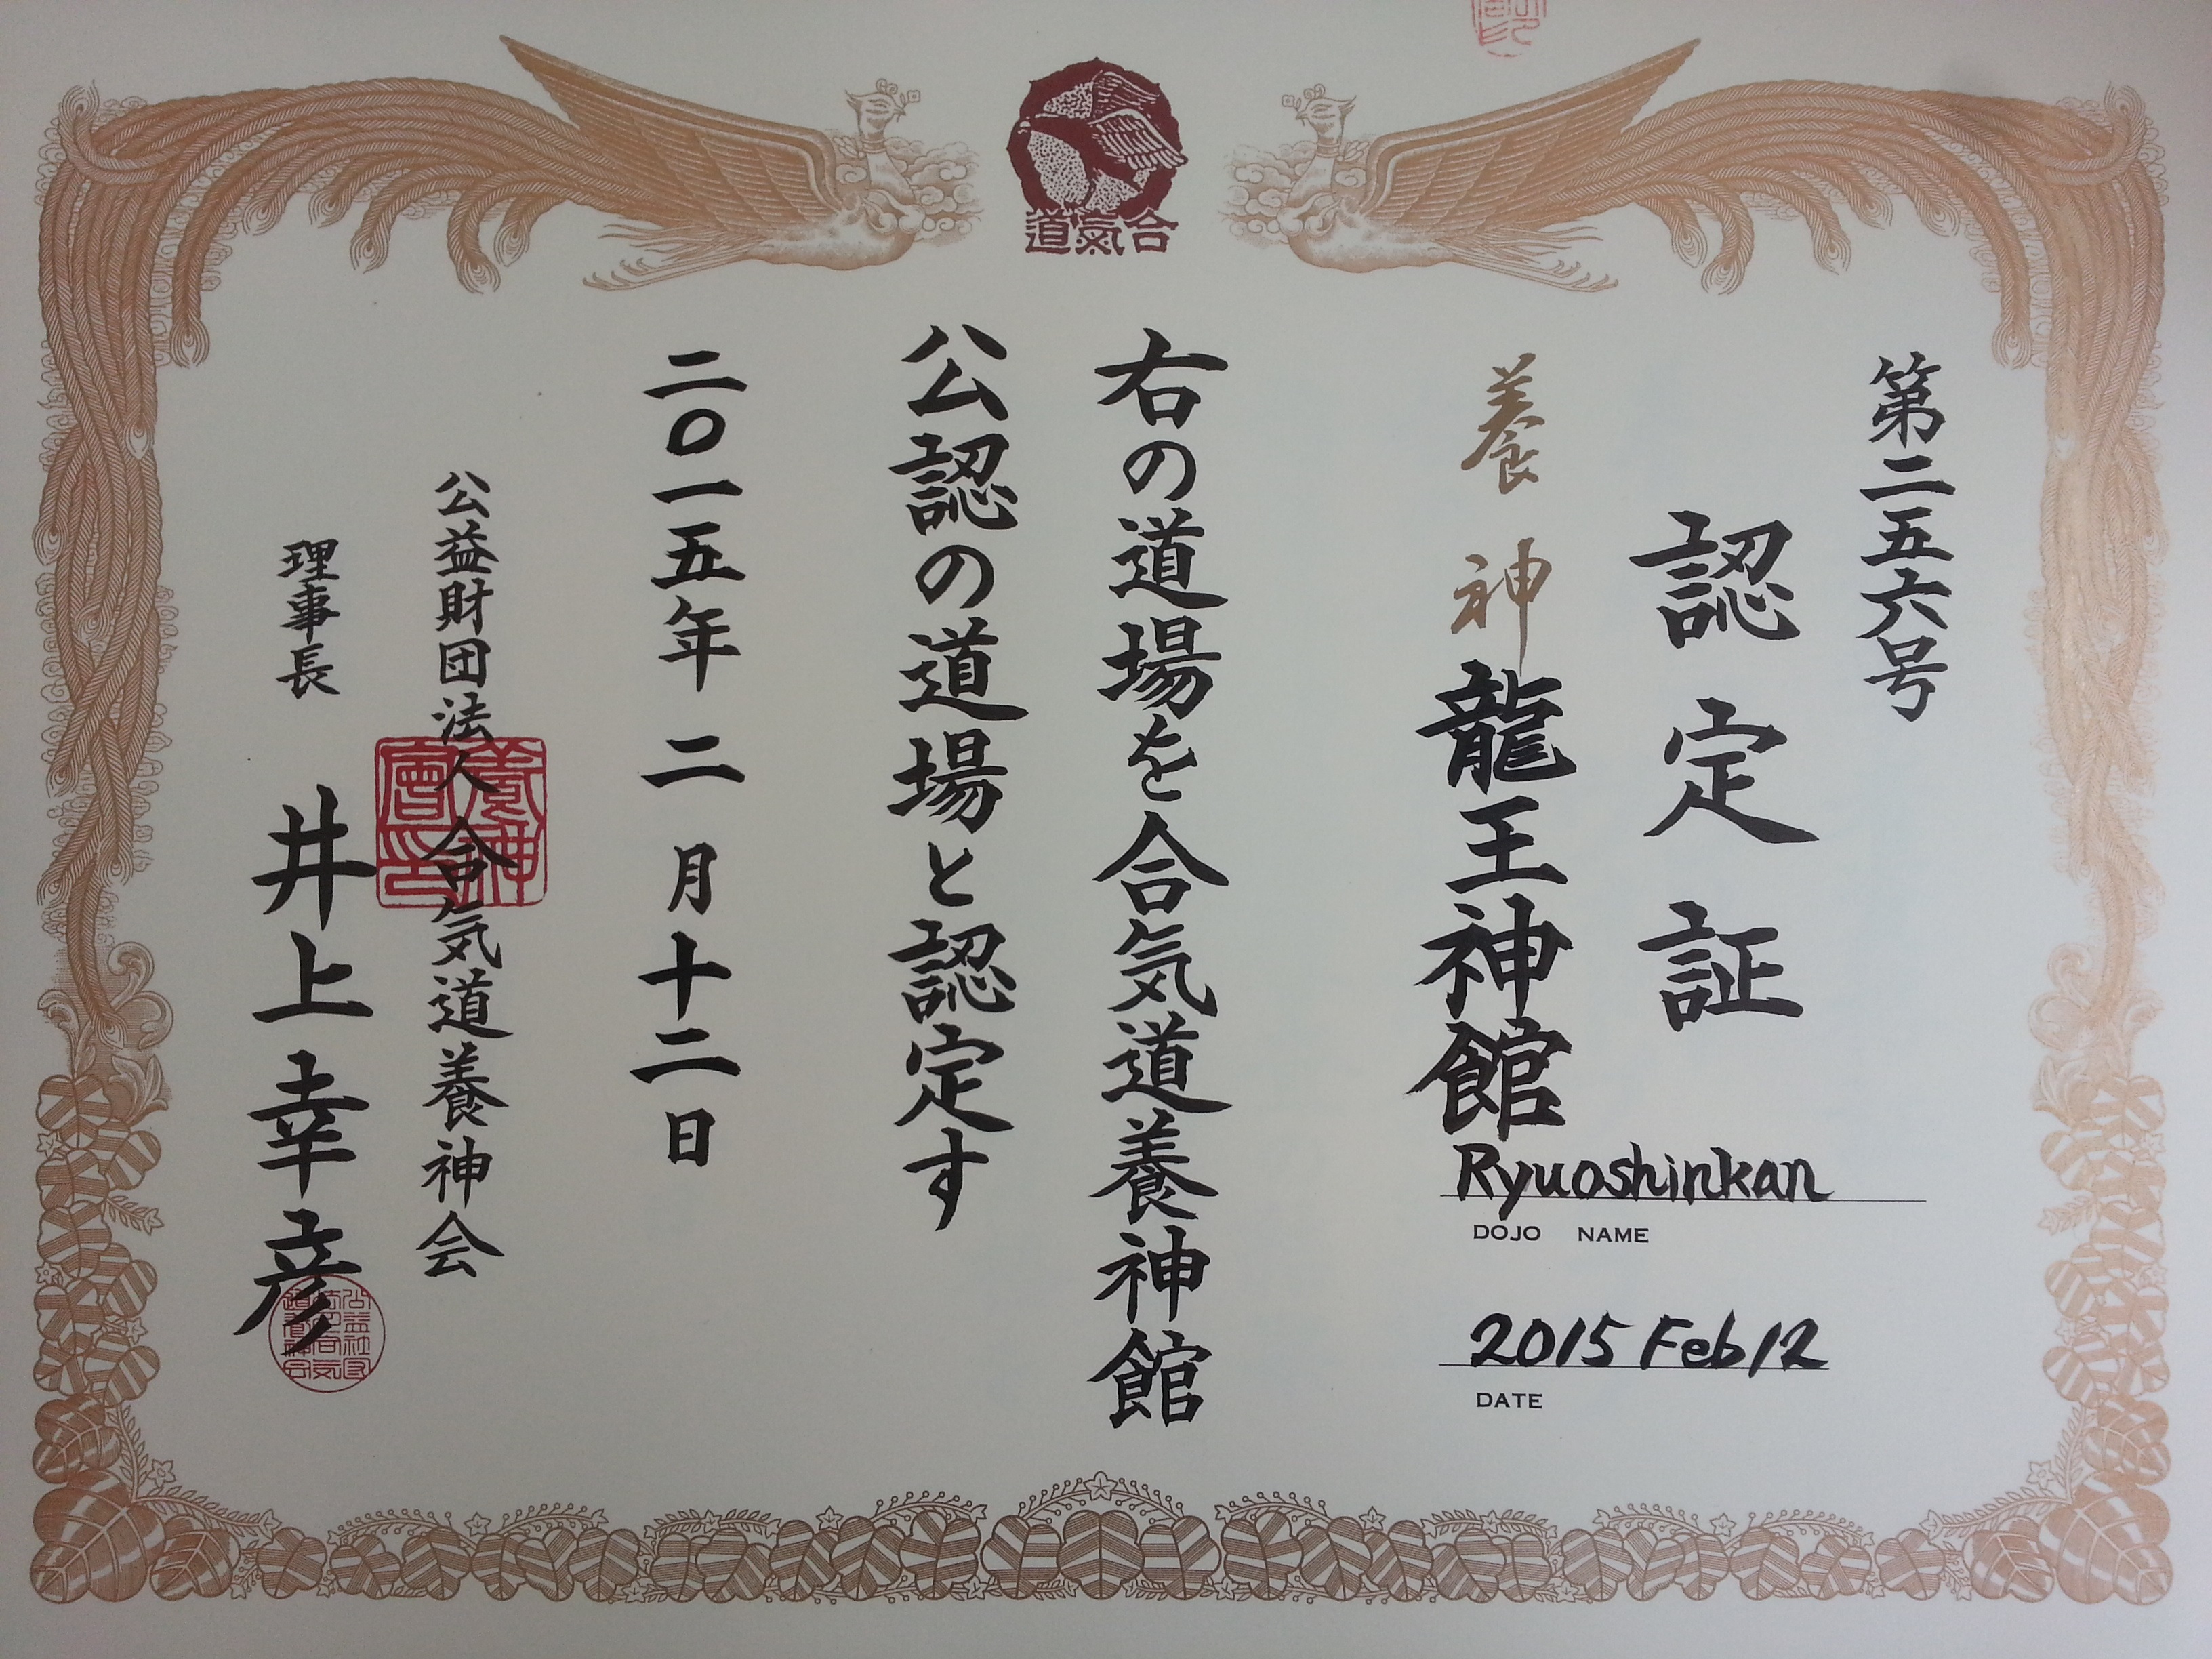 合氣道
第二五六号
認定証
養神
龍王神館
Ryuoshinkan
DOJO NAME
2015 Feb 12
DATE
右の道場を合気道養神館
公認の道場と認定す
二〇一五年二月十二日
公益財団法人合気道養神会
理事長 井上幸彦
養神會印